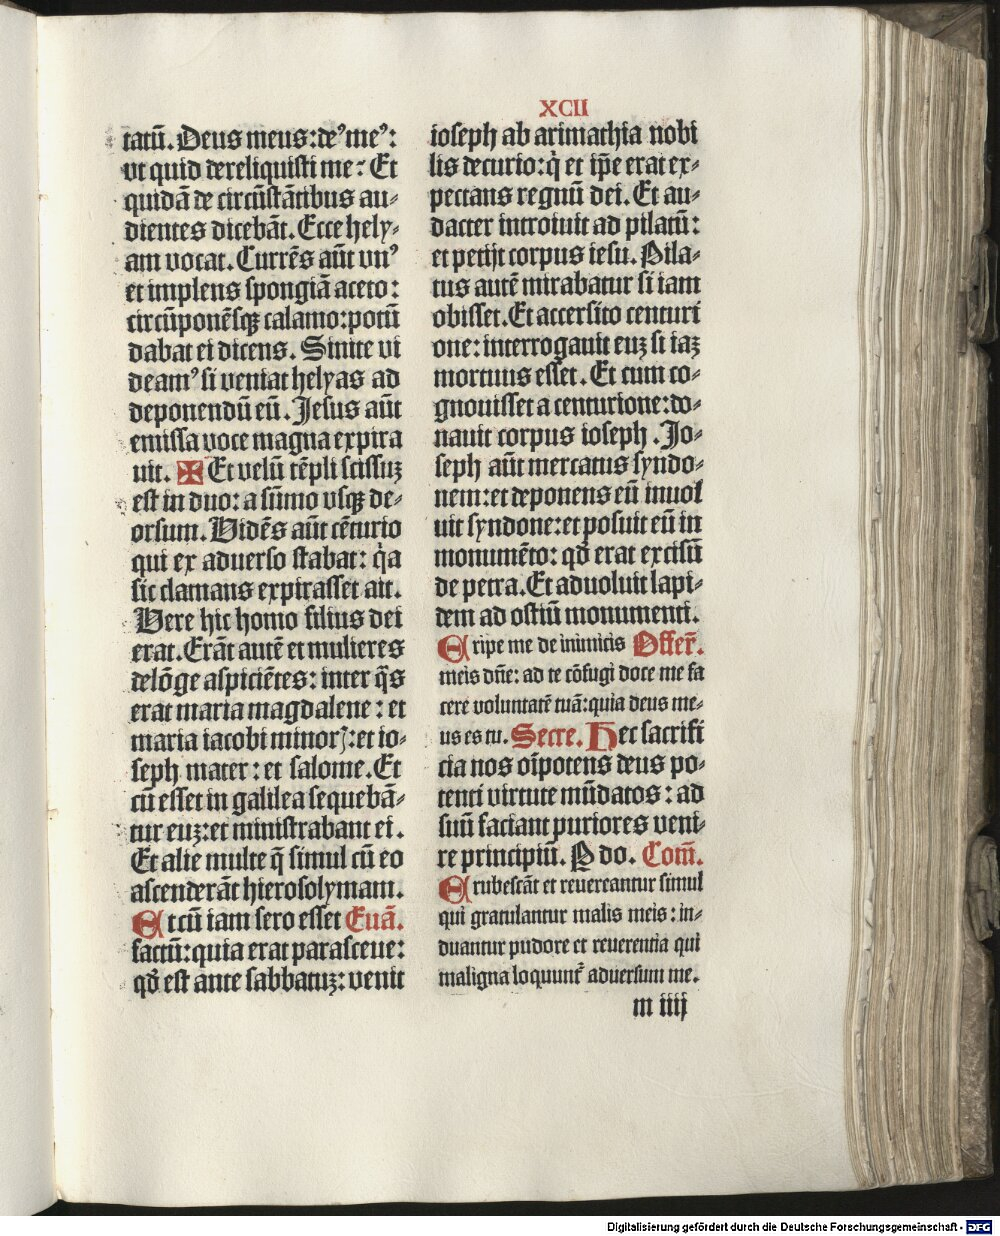 XCII
tatū. Deus meus: deꝰ meꝰ:
vt quid dereliquisti me: Et
quidā de circūstātibus au-
dientes dicebāt. Ecce hely-
am vocat. Currēs aūt vnꝰ
et implens spongiā aceto:
circūponēsqꝫ calamo: potū
dabat ei dicens. Sinite vi
deamꝰ si veniat helyas ad
deponendū eū. Jesus aūt
emissa voce magna expira
uit. ✠ Et velū tēpli scissuꝫ
est in duo: a sūmo vsqꝫ de-
orsum. Vidēs aūt cēturio
qui ex aduerso stabat: q̇a
sic clamans expirasset ait.
Vere hic homo filius dei
erat. Erāt autē et mulieres
delōge aspiciētes: inter q̄s
erat maria magdalene: et
maria iacobi minorꝝ: et io-
seph mater: et salome. Et
cū esset in galilea sequebā-
tur euꝫ: et ministrabant ei.
Et alie multe q̄ simul cū eo
ascenderāt hierosolymam.
Et cū iam sero esset Euā.
factū: quia erat parasceue:
qđ est ante sabbatuꝫ: venit
ioseph ab arimathia nobi
lis decurio: q̇ et ip̄e erat ex-
pectans regnū dei. Et au-
dacter introiuit ad pilatū:
et petijt corpus iesu. Pila-
tus autē mirabatur si iam
obisset. Et accersito centuri
one: interrogauit euꝫ si iaꝫ
mortuus esset. Et cum co-
gnouisset a centurione: do-
nauit corpus ioseph. Jo-
seph aūt mercatus syndo-
nem: et deponens eū inuol
uit syndone: et posuit eū in
monumēto: qđ erat excisū
de petra. Et aduoluit lapi-
dem ad ostiū monumenti.
Eripe me de inimicis Offer̄.
meis dn̄e: ad te cōfugi doce me fa
cere voluntatē tuā: quia deus me-
us es tu. Secre. Hec sacrifi
cia nos oīpotens deus po-
tenti virtute mūdatos: ad
suū faciant puriores veni-
re principiū. P do. Com̄.
Erubescāt et reuereantur simul
qui gratulantur malis meis: in-
duantur pudore et reuerentia qui
maligna loquunt᷑ aduersum me.
m iiij
Digitalisierung gefördert durch die Deutsche Forschungsgemeinschaft - DFG